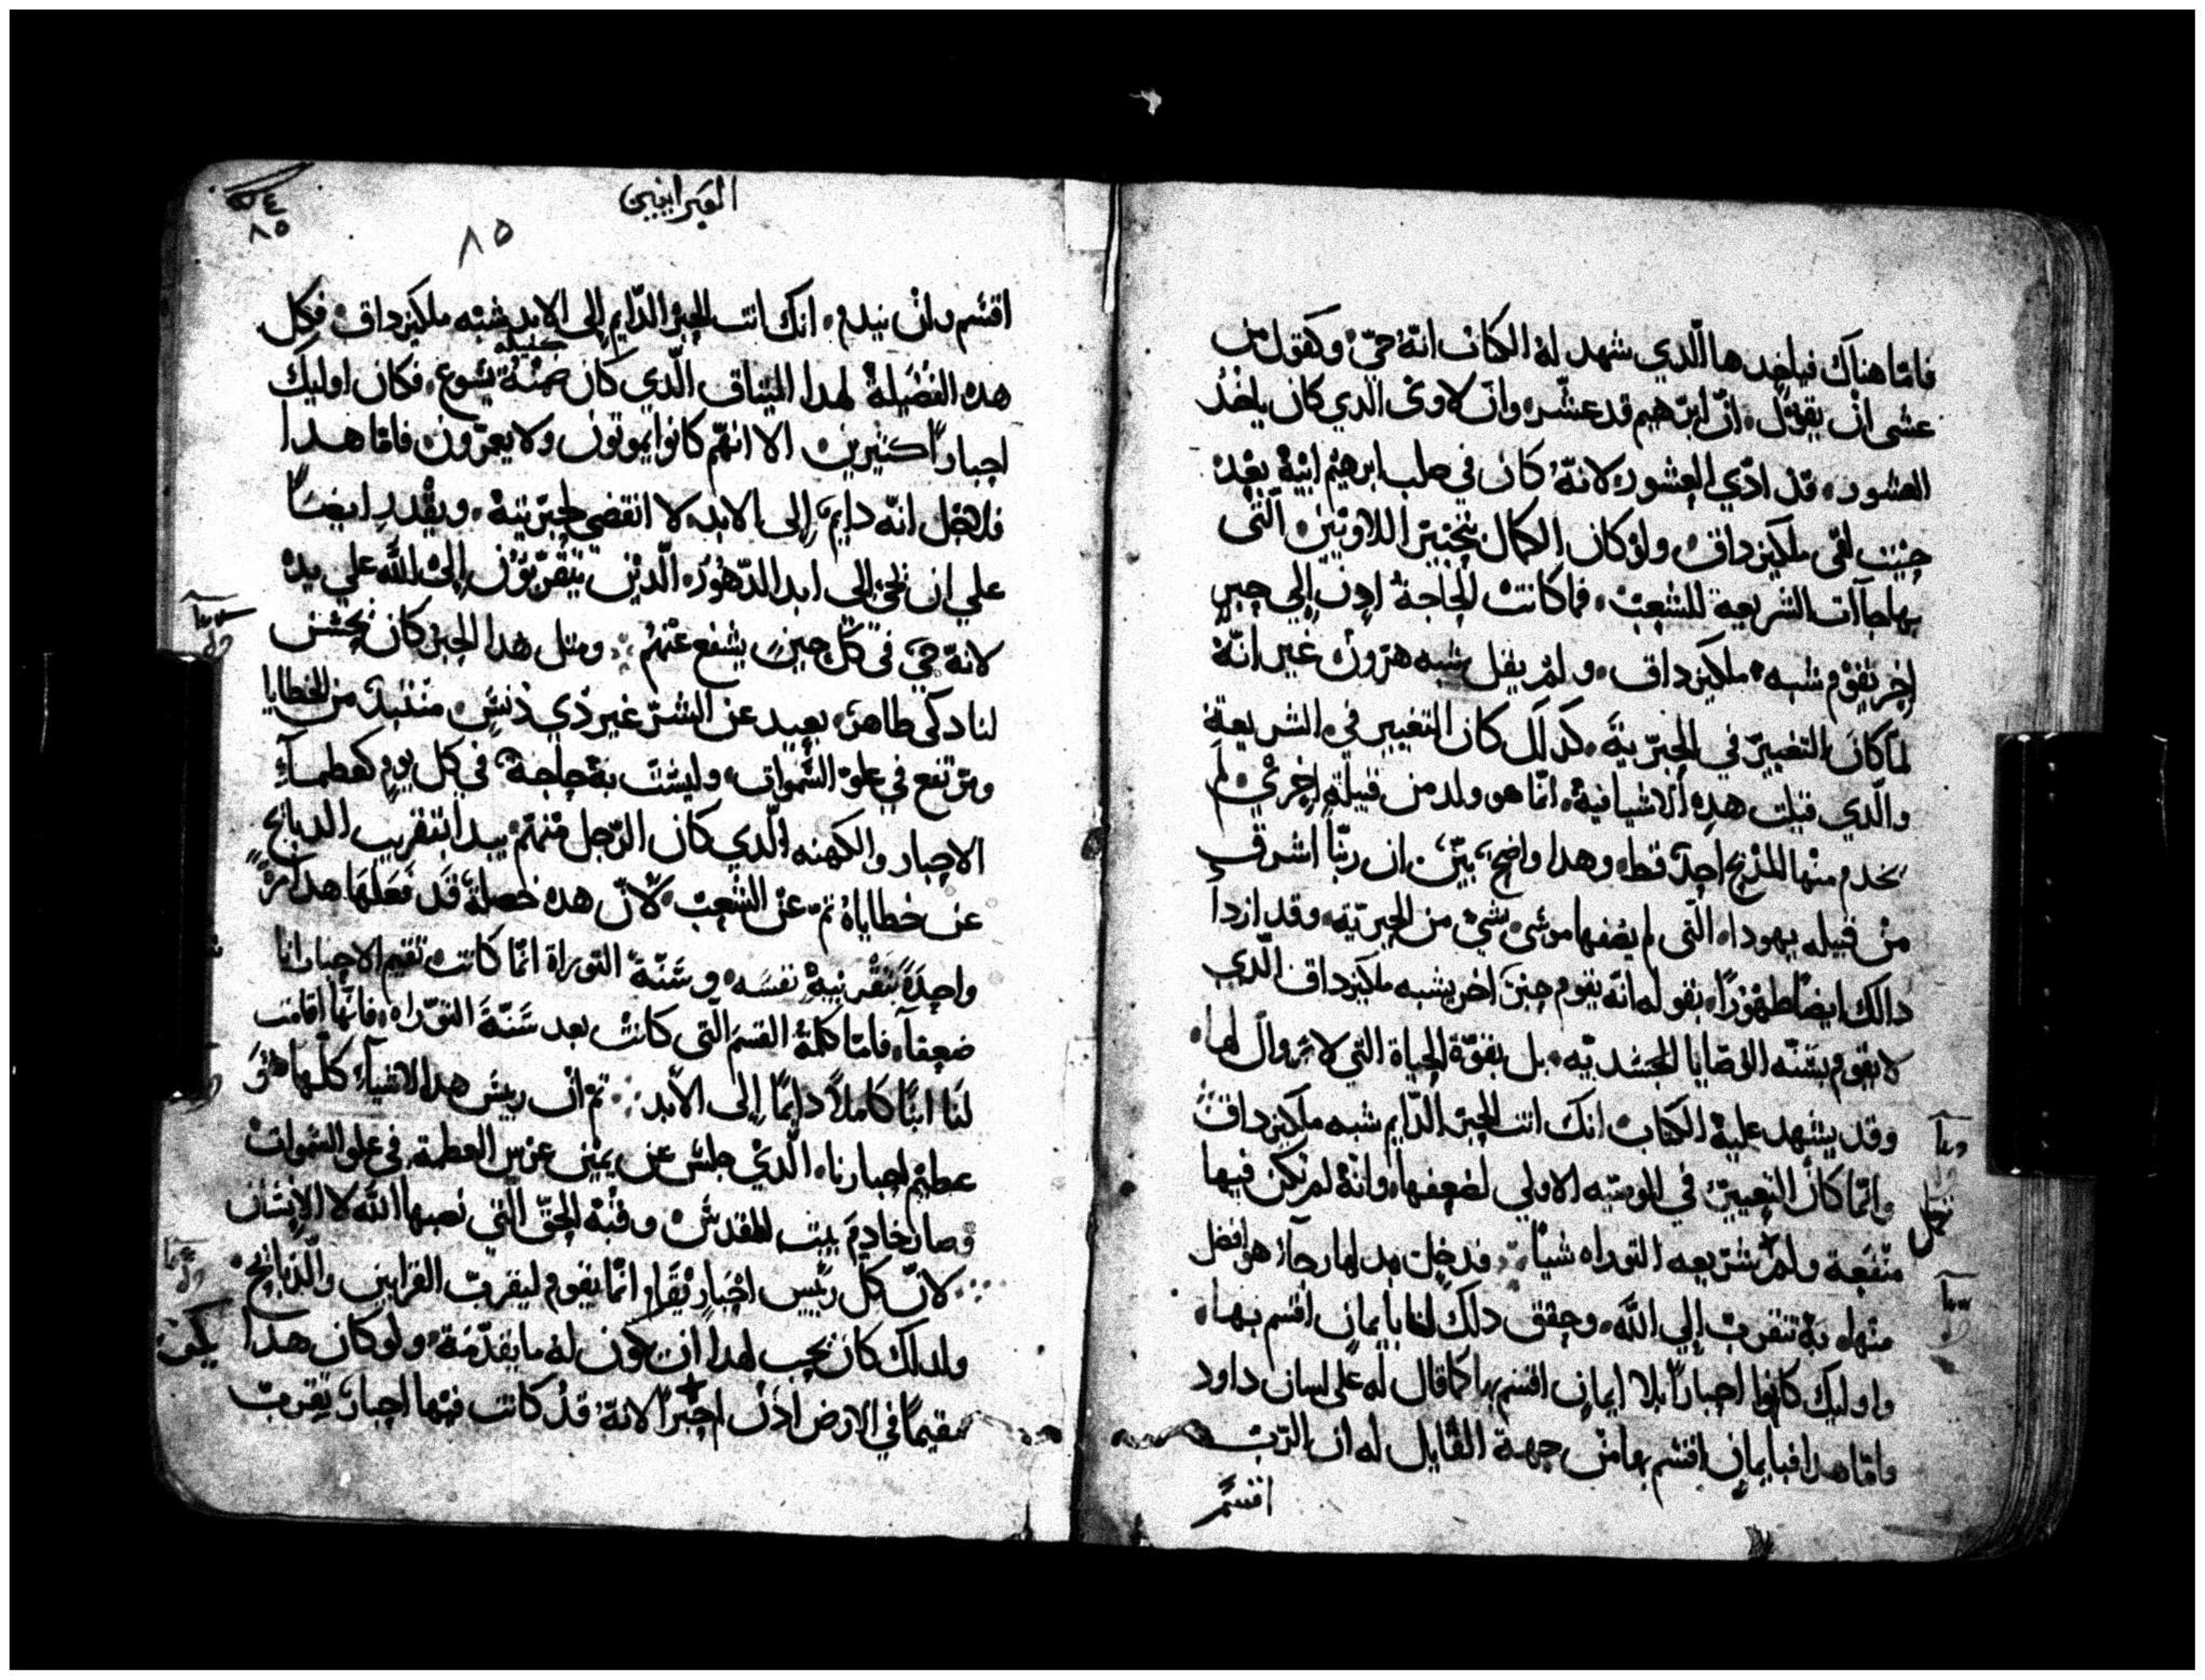 فامّا هناك فياخدها الّدي شهد له الكتاب انّهُ حيّ وكقول من
عسى ان يقول، انّ ابرهيم قد عشّر، وانّ لاوى الّدي كان ياخذ
العشور، قد ادّي العشور، لانّهُ كان في صلب ابرهيم ابيهِ بعد
حيت لقى ملكيزداق، ولو كان الكمال بتحبير اللاويين الّتي
بها جاآت الشريعة للشعب، فما كانت الحاجة اذن إلي حبرٍ
اخر يقوم شبه ملكيزداق، ولم يقل شبه هرون غير انّهُ
لمّا كان التغيير في الحبريّة، كدلك كان التغيير في الشريعة
والّدي قيلت هده الاشيا فيهِ، انّما هو ولد من قبيلةٍ اخري لم
يخدم منها المدبح احدٌ قط، وهدا واضحٌ بيّنٌ، ان ربّنا اشرق
من قبيله يهودا، الّتي لم يصفها موسي بشي من الحبريّة، وقد ازداد
دالك ايضًا ظهورًا، بقوله انّه يقوم حبرٌ اخر يشبه ملكيزداق الّدي
لا يقوم بسنّه الوصايا الجسديّه، بل بقوّة الحياة التي لا زوال لها،
وقد يشهد عليهِ الكتاب انك انت الحبر الدّايم شبه ملكيزداق
وانّما كان التغيير في الوصيّه الاولي لضعفها، وانّهُ لم تكن فيها
منفعة ولم شريعه التوراه شيًا، فدخل بدلها رجآءٌ هو افضل
تكمل
منها، به نتقرب إلي اللّه، وحقق دلك لنا بايمانٍ اقسم بها،
واوليك كانوا احبارًا بلا ايمانٍ اقسم بها كما قال له على لسان داود
وامّا هدا فبايمانٍ اقسم بها من جهة القايل له ان الرّب
اقسم
العبرانيين
٨٥
٨٥
اقسم ولن يندم، انك انت الحبر الدّايم إلى الابد شبه ملكيزداق، فكل
كفيله
هده الفضيلة لهدا الميتاق الّدي كان ضمنهُ يسوع، فكان اوليك
احبارًا كثيرين الا انهّم كانوا يموتون ولا يعمّرون فامّا هدا
فلاجل انّه دايمٌ إلى الابد، لا انقضى لحبريّتهِ، ويقدر ايضًا
علي ان يحيي إلى ابد الدّهور، الّدين يتقرّبون إلى اللّه علي يدهِ
لانّهُ حيّ في كلّ حينٍ يشفع عنهُم، ومتل هدا الحبر كان يحسن
لنا دكى طاهرٌ، بعيد عن الشرّ غير ذي دنسٍ، منتبدٌ من الخطايا
ومرتفع في علوّ السّموات، وليست بهِ حاجةٌ في كل يومٍ كعظمآء
الاحبار والكهنه الّدي كان الرّجل منهم يبدا بتقريب الدبايح
عن خطاياهُ تمّ عن الشعب، لانّ هده خصلةٌ قد فعلها هدا مرّةً
واحدةً بتقريبهِ نفسَه، وسَنّة التوراة انّما كانت تقيم الاحبار اناسًا
ضعفآء، فامّا كلمة القسم الّتي كانت بعد سَنّة التوراه، فانّها اقامت
لنا ابنًا كاملاً دايمًا إلى الأبد، تم ان ريس هدا الاشيآء كلّها هو
عظيم احبارنا، الّدي جلس عن يمين عرس العظمة، في علو السّموات
وصار خادم بيت المقدس، وقبّة الحق الّتي نصبها اللّه لا الانسان
لانّ كل رييس احبارٍ يُقام انّما يقوم ليقرب القرابين والدّبايح،
ولدلك كان يجب لهدا ان يكون له ما يقدّمهُ، ولو كان هدا
مقيمًا في الارض اذن لم يكن حبرًا لانّهُ قد كانت فيها احبارٌ يقرب
يكون